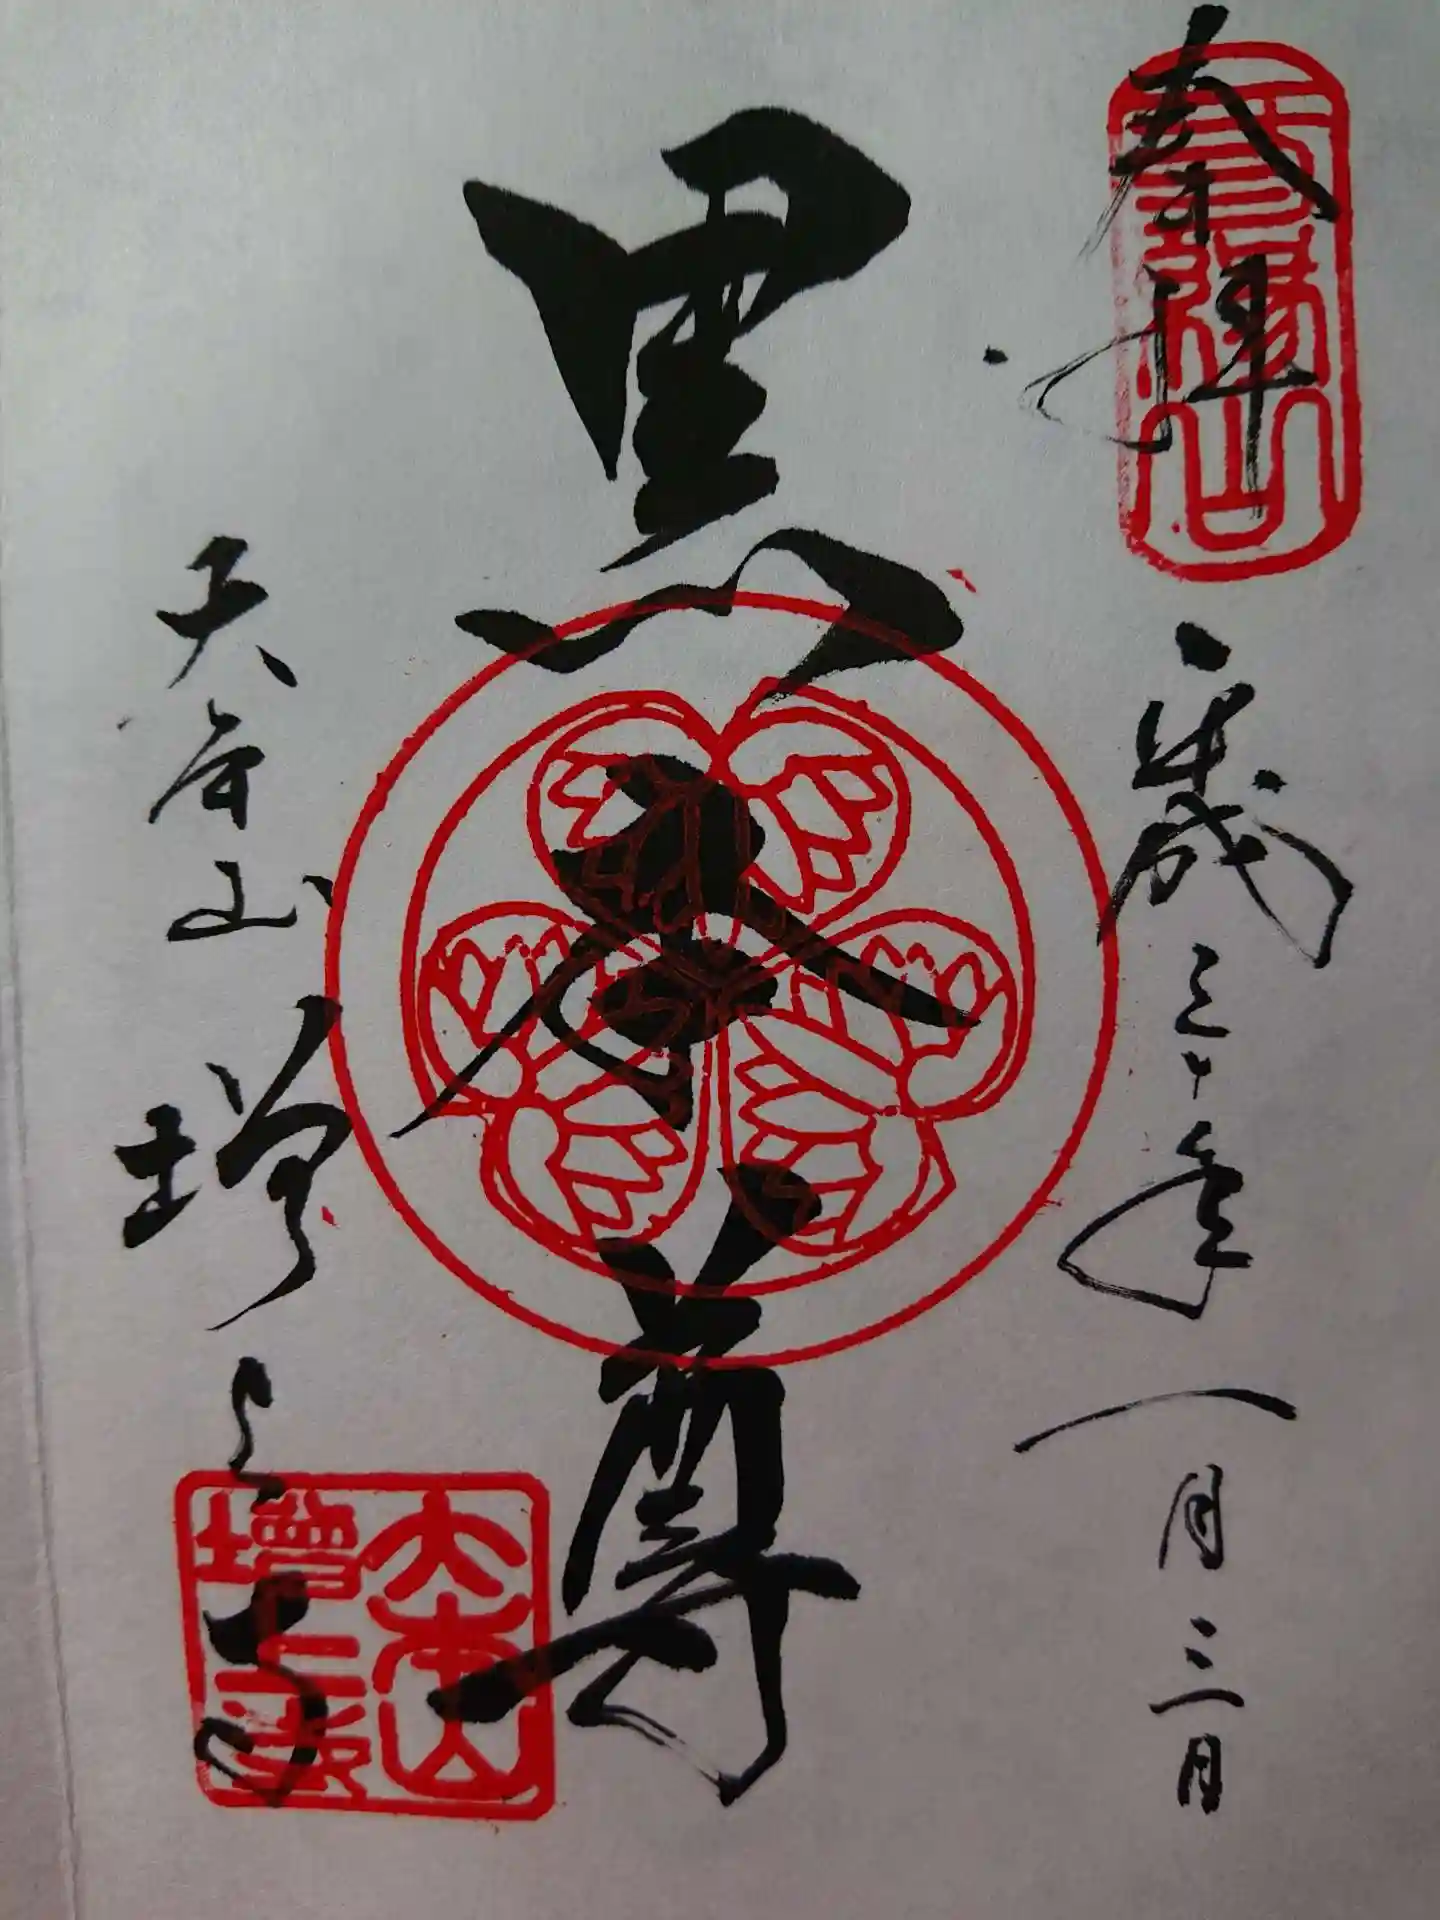 奉拝
三縁山
平成三十年一月三日
黒本尊
大本山増上寺
大本山
増上寺